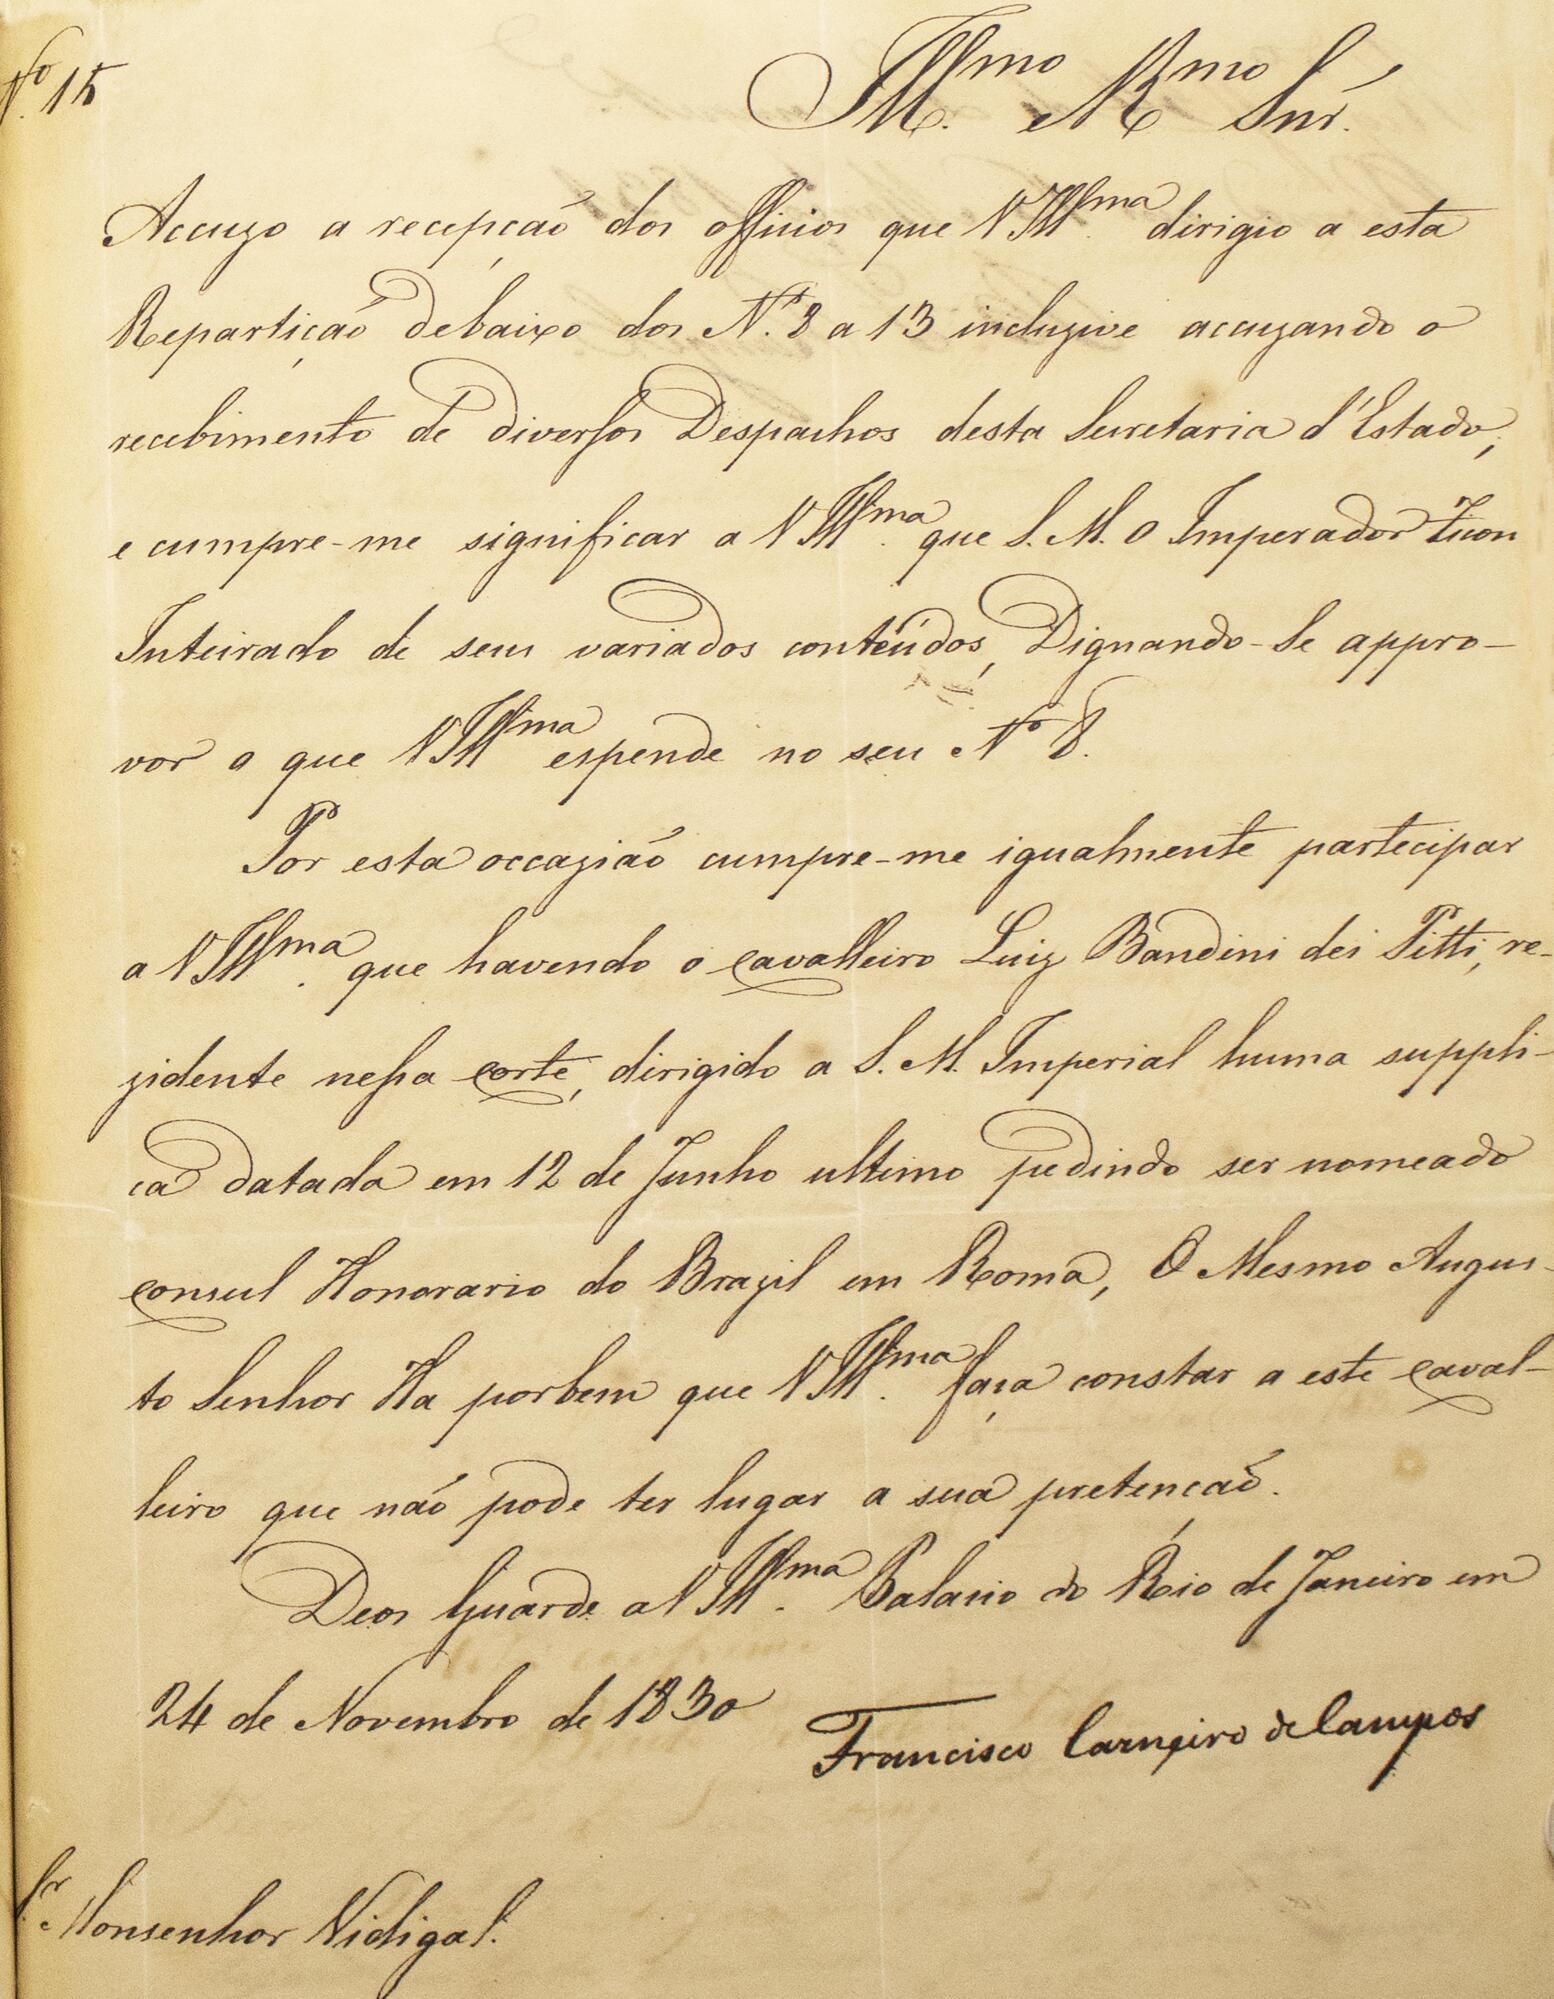 Nº 15
Illmo e Rmo Snr.
Accuzo a recepção dos officios que V Illma. dirigio a esta
Repartição debaixo dos N.os 8 a 13 incluzive accuzando o
recebimento de diversos Despachos desta Secretaria d'Estado,
e cumpre-me significar a V Illma. que S. M. O Imperador Ficou
Inteirado de seus variados contéudos, Dignando-Se appro-
var o que V Illma espende no seu Nº 8.
Por esta occazião cumpre-me igualmente partecipar
a V Illma. que havendo o Cavalleiro Luiz Bandini dei Pitti, re-
zidente nessa Corte, dirigido a S. M. Imperial huma suppli-
ca datada em 12 de Junho ultimo pedindo ser nomeado
Consul Honorario do Brazil em Roma, O Mesmo Augus-
to Senhor Ha porbem que V Illma. faça constar a este Caval-
leiro que não pode ter lugar a sua pretenção.
Deos Guarde a V Illma. Palacio do Rio de Janeiro em
24 de Novembro de 1830
Francisco Carneiro de Campos
Sr. Monsenhor Vidigal.